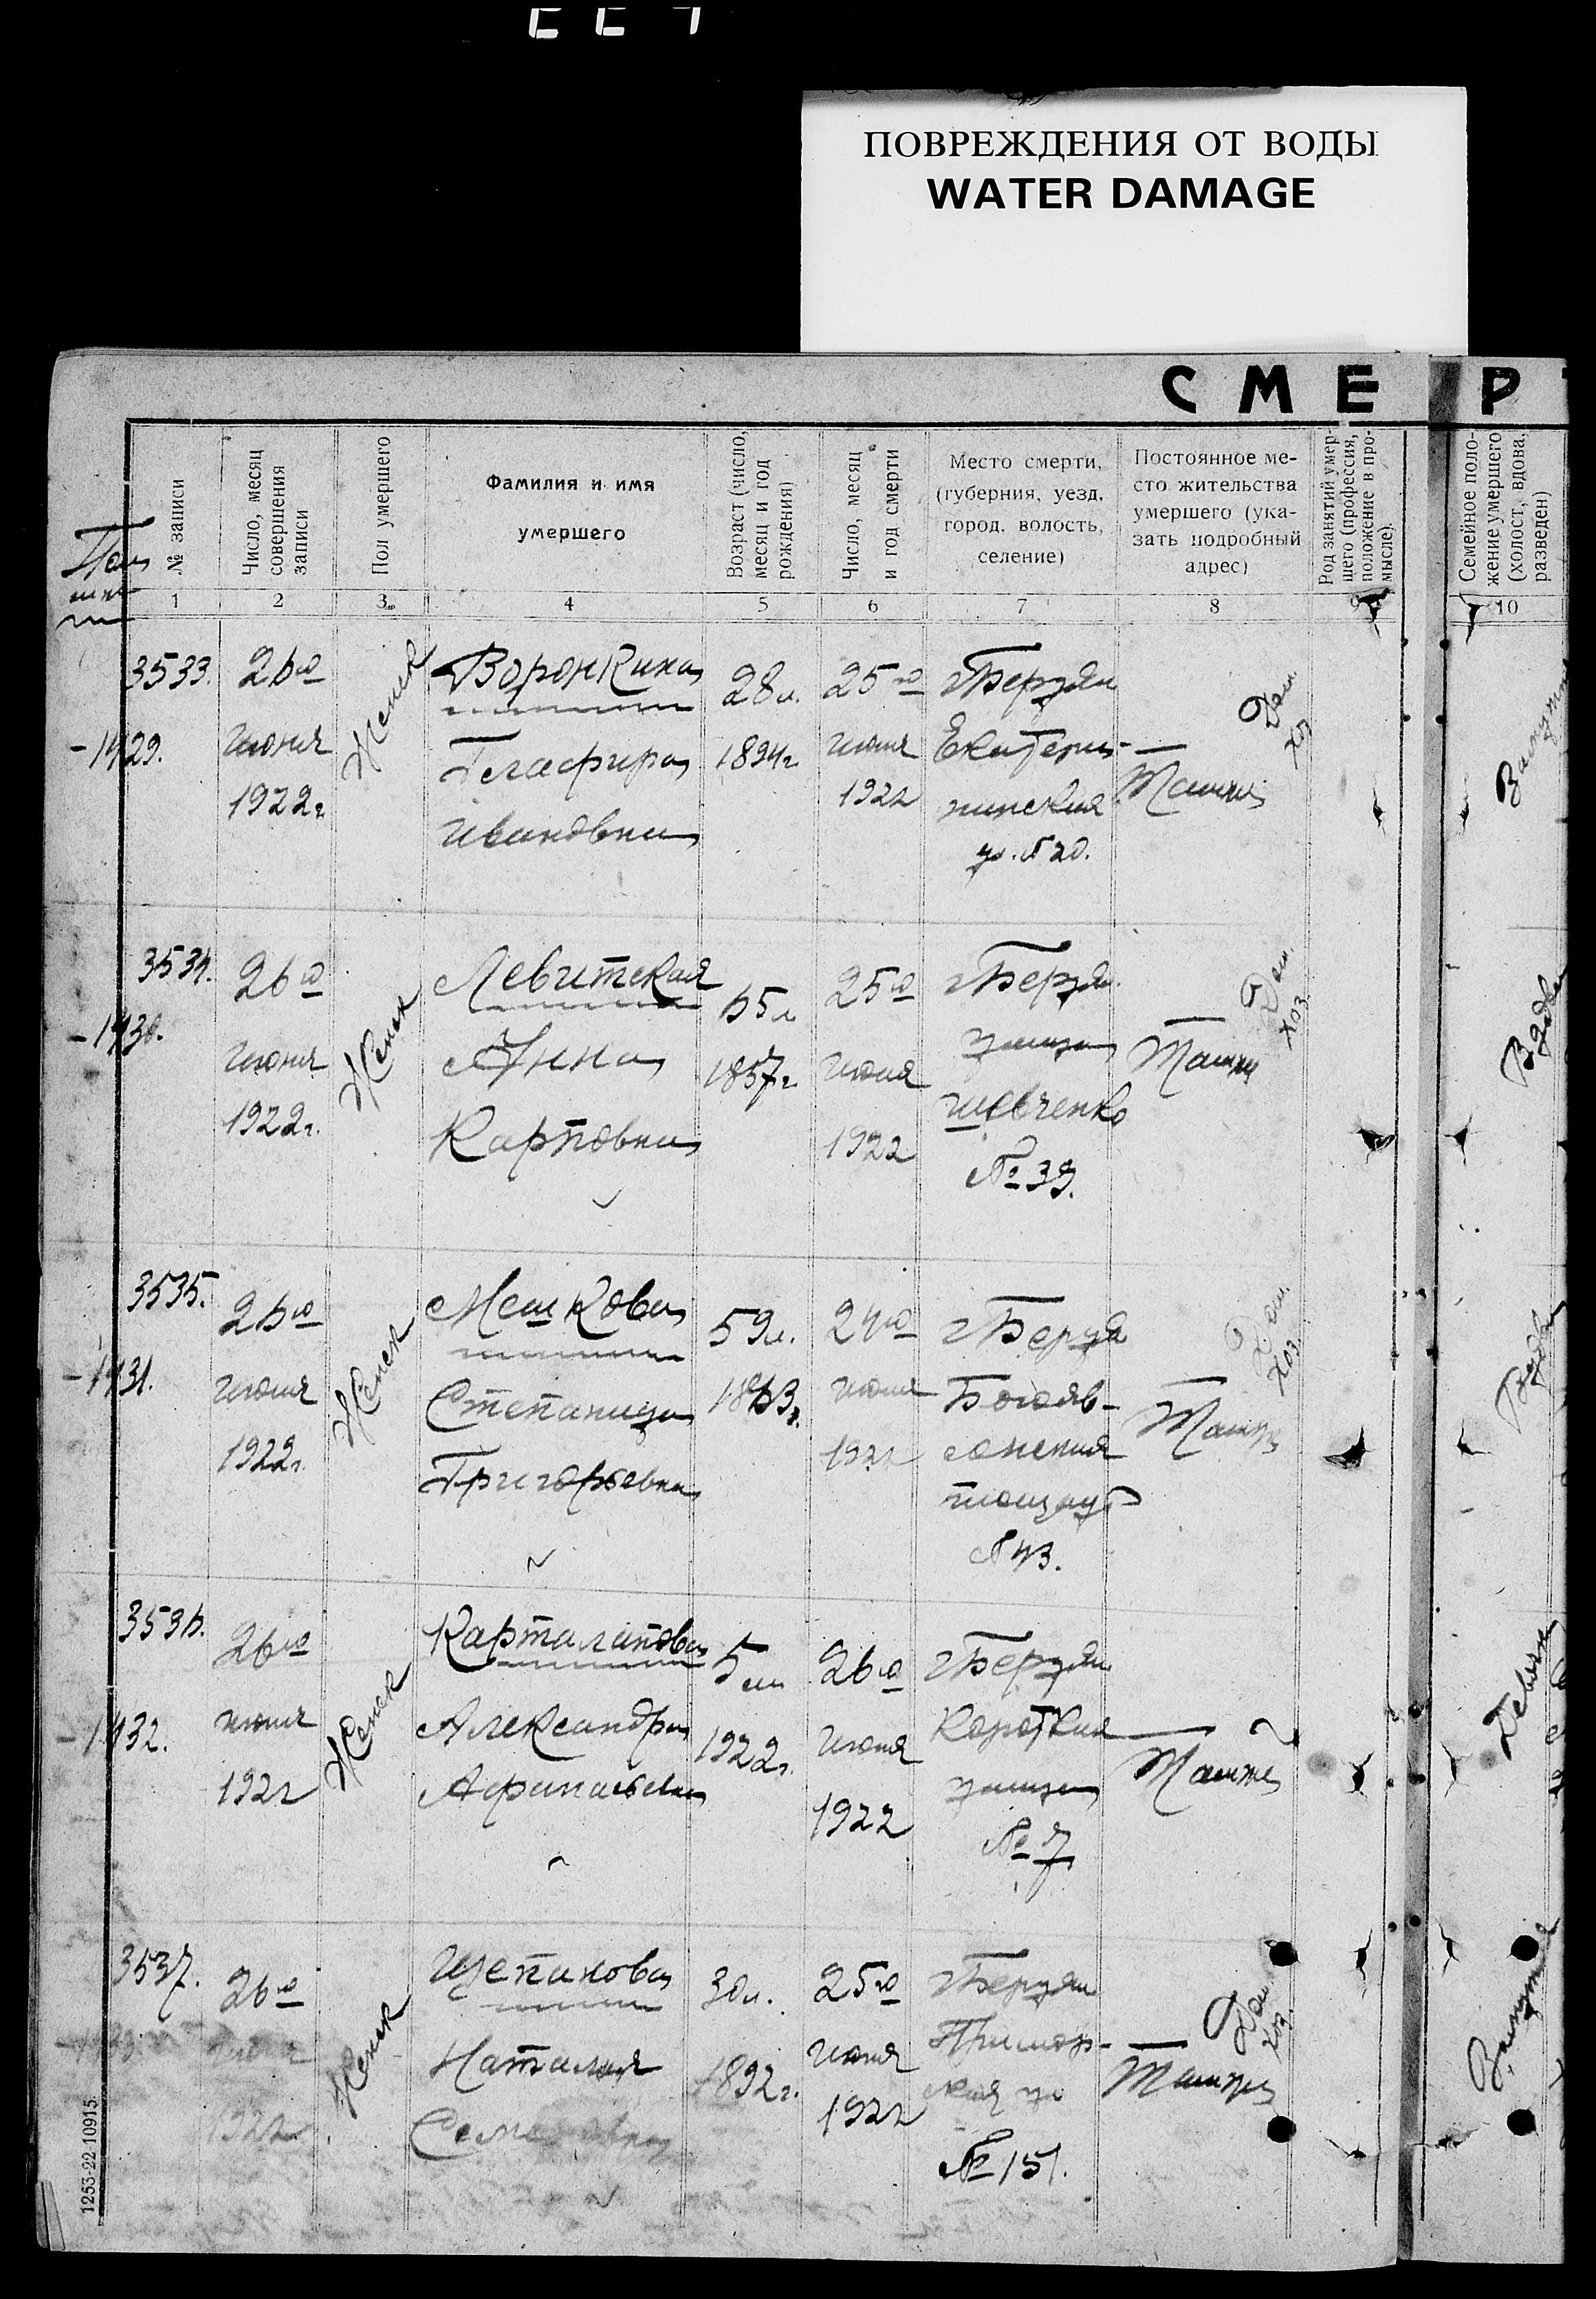 ПОВРЕЖДЕНИЯ ОТ ВОДЫ
WATER DAMAGE
СМЕР
№ записи
Число, месяц
совершения
записи
Пол умершего
Фамилия и имя
умершего
Возраст (число,
месяц и год
рождения)
Число, месяц
и год смерти
Место смерти,
(губерния, уезд,
город, волость,
селение)
Постоянное ме-
сто жительства
умершего (ука-
зать подробный
адрес)
Род занятий умер-
шего (профессия,
положение в про-
мысле).
Семейное поло-
жение умершего
(холост, вдова,
разведен)
1 2 3 4 5 6 7 8 9 10
3533.
-1429.
26го
июня
1922г
Женск
Воронкина
Глафира
Ивановна
28л.
1894г
25го
июня
1922
г Бердян
Екатери-
нинская
ул. № 20.
Там же
Дом.
хоз
Замуж
3534.
-1430.
26го
июня
1922г.
Женск
Левитская
Анна
Карповна
65л
1857г
25го
июня
1922
г Бердя
улица
Шевченко
№ 39.
Там же
Дом.
хоз.
Вдова
3535.
-1431.
26го
июня
1922г.
Женск
Мешкова
Степанида
Григорьевна
59л.
1863г.
24го
июня
1922
г Бердя
Богояв-
ленския
площадь
№ 43.
Там же
Дом.
хоз.
Вдова
3536.
-1432.
26го
июня
1922
Женск
Александра
5 м
1922г.
26го
июня
1922
г Бердян
Короткая
улица
№ 7
Там же
Девица
3537.
26го
июня
1922
Женск
Щепинова
Наталия
30л.
1892г.
25го
июня
1922
г Бердян
Примор-
ская ул
№ 151.
Там же
Дом.
хоз.
Замужня
1253-22 10915